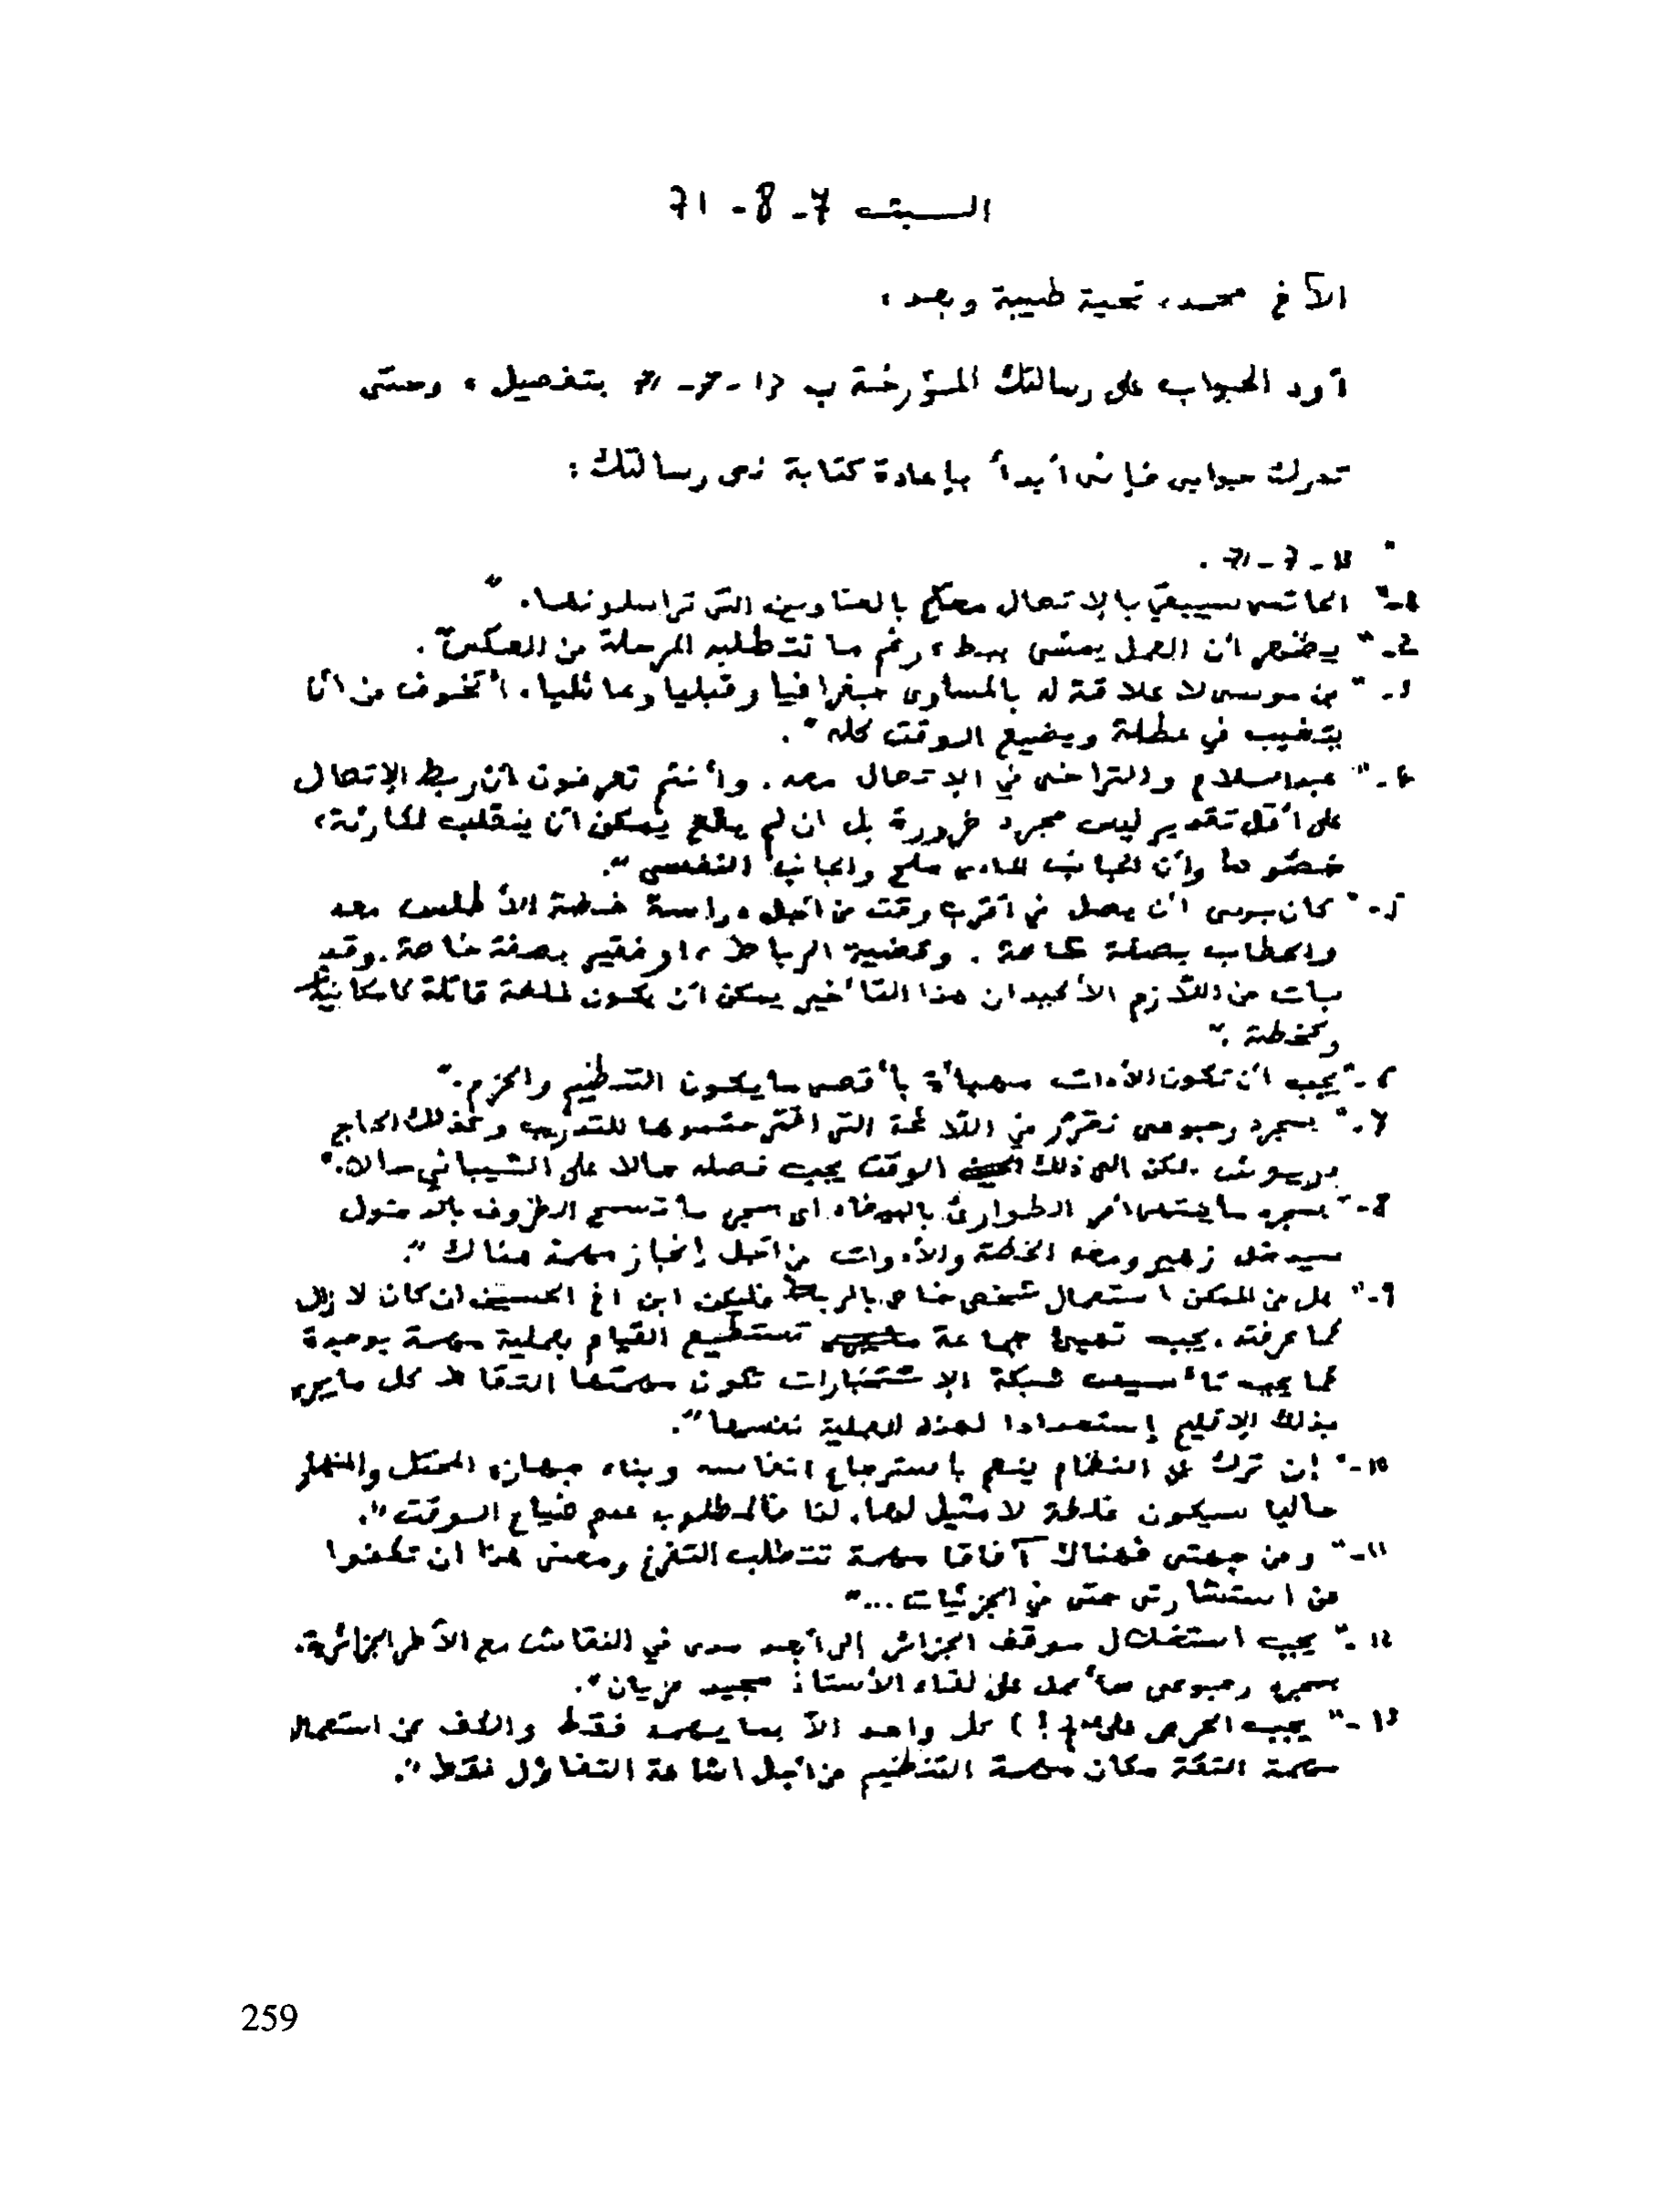 السبت 7-8-71
الأخ محمد، تحية طيبة وبعد،
أود الجواب على رسالتك المؤرخة ب 13-7-71 بتفصيل، وحتى
تدرك جوابي فإنني أبدأ بإعادة كتابة نص رسالتك:
" 13-7-71.
1-" بالإتصال معكم بالعناوين التي تراسلونها. "
2-" يظهر أن العمل يمشي ببطء، رغم ما تتطلبه المرحلة من العكس".
3-" بن موسى لا علاقة له بالمساوى جغرافيا وقبليا وعائليا. أتخوف من أن
يتغيب في عطلة ويضيع الوقت كله".
4-" عبدالسلام والتراخي في الإتصال معه. وأنتم تعرفون أن ربط الإتصال
على أقل تقدير ليس مجرد ضرورة بل ان لم يقع يمكن أن ينقلب لكارثة،
خصوصا وأن الجانب المادي ملح والجانب النفسي".
5-" كان بودي أن يصل في أقرب وقت من أجل دراسة خطة الأطلس معه
والحطاب بصفة عامة. وقضية الرباط، اوفقير بصفة خاصة. وقد
بات من اللازم الأكيد ان هذا التأخير يمكن أن يكون غلطة قاتلة
وكخطة."
6-" يجب أن تكون الأدوات مهيأة بأقصى ما يكون التنظيم والحزم."
7-" بمجرد رجوعي نقرر في اللائحة التي اقترحتموها للتدريب وكذلك الحاج
بدريوش. لكن الى ذلك الوقت يجب فصله حالا على الشيباني حالا."
8-" بمجرد ما ينتهي أمر الطوارئ بالبيضاء اى حين ما تسمح الظروف بالدخول
سيدخل زهير ومعه الخطة والأدوات من أجل إنجاز مهمة هناك".
9-" هل من الممكن استعمال شخص خاص بالرباط فليكن ابن اخ الحسين ان كان لا زال
كما عرفته. يجب تهيئ جماعة تستطيع القيام بعملية مهمة بوجدة
كما يجب تأسيس شبكة الإستخبارات تكون مهمتها التقاط كل ما يجري
بذلك الإقليم إستعدادا لهذه العملية نفسها".
10-" إن ترك النظام ينعم باسترجاع انفاسه وبناء جهازه المختل والمنهار
حاليا سيكون غلطة لا مثيل لها. لذا فالمطلوب عدم ضياع الوقت".
11-" ومن جهتي فهناك آفاقا مهمة تتطلب التفرغ ومعنى هذا ان تكفوا
من استشارتي حتى في الجزئيات..."
12-" يجب استغلال موقف الجزائر إلى أبعد مدى في النقاش مع الأطر الجزائرية.
بمجرد رجوعي سأعمل على لقاء الأستاذ مجيد مزيان".
13-" يجب الحرص على (!) كل واحد الا بما يهمه فقط والكف عن استعمال
مهمة الثقة مكان مهمة التنظيم من أجل اشاعة التفاؤل فقط".
259